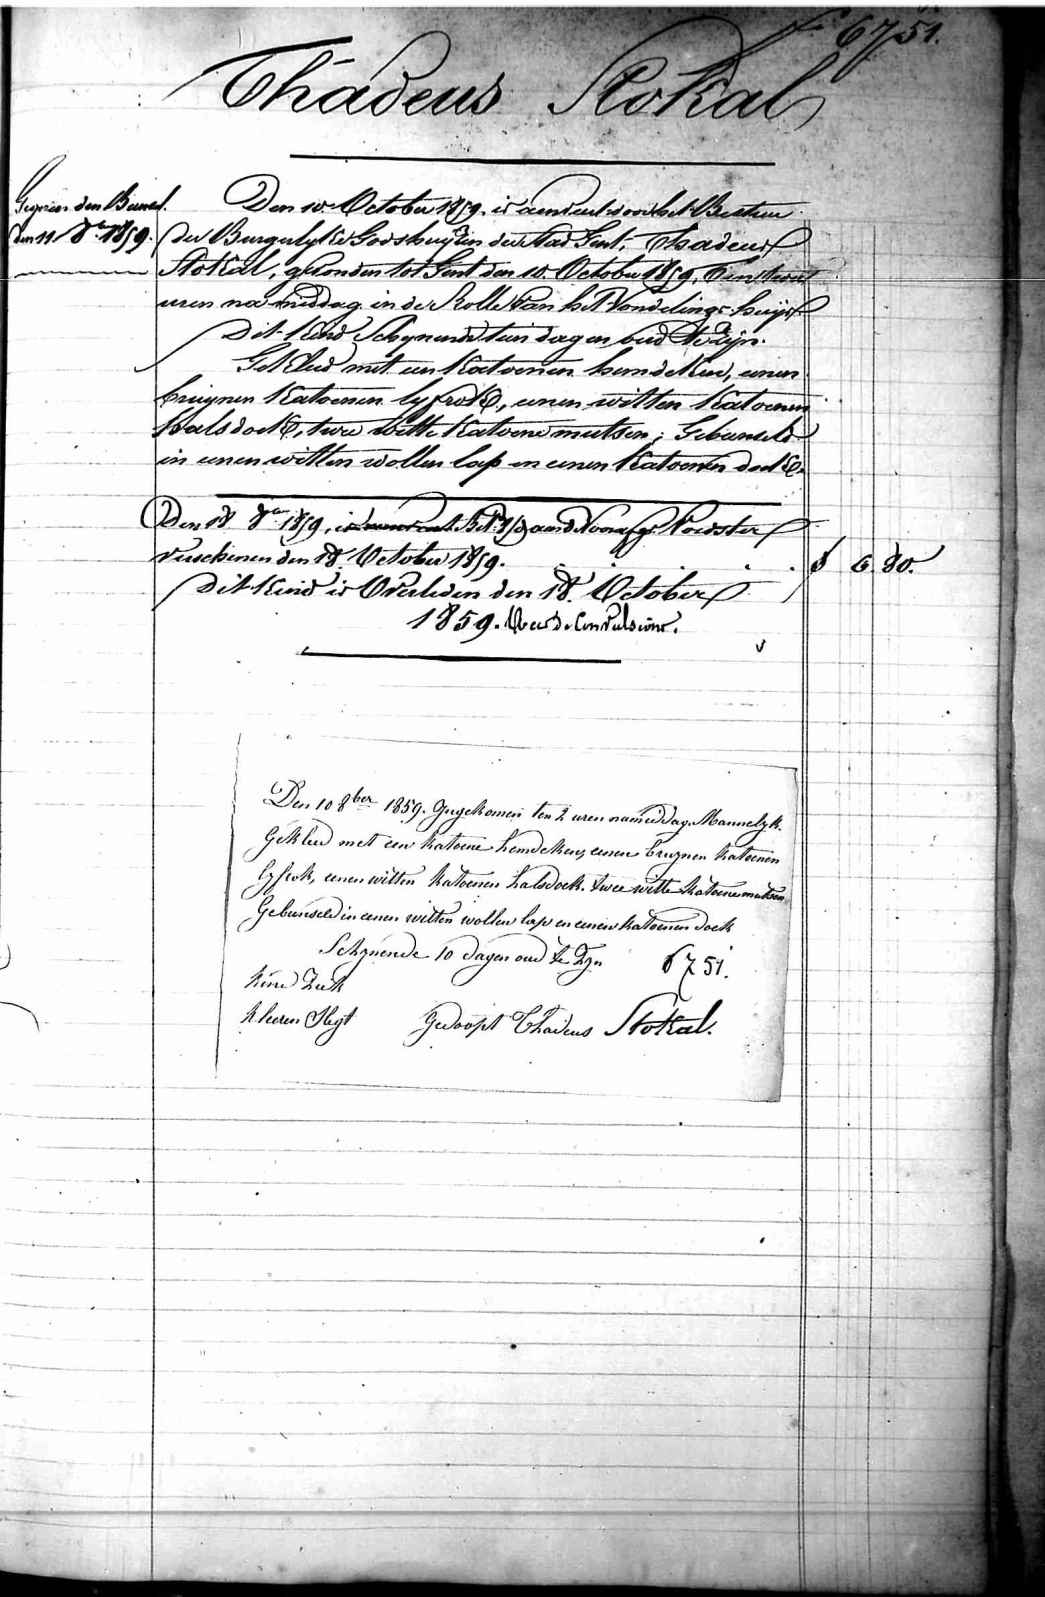 6751.
Thadeus Stokal
den Buul.
den 11 8bre 1859.
Den 10 October 1859. is aenveert door het Bestuur
der Burgerlyke Godshuyzen der stad Gent, Thadeus
Stokal, gevonden tot Gent den 10. October 1859, ten twee
uren na middag in de Rolle van het Vondelings-huys
Dit Kind Schynende tien dagen oud te Zyn.
Gekleed met een Katoenen hemdeken, eenen
bruynen Katoenen lyfrock, eenen witten Katoenen
halsdoek, twee witte Katoene mutsen; Gebunseld
in eenen witten wollen lap en eenen Katoenen doek.
Den 18 8bre 1859, Voedster
Verschenen den 18 October 1859.
$ 6. 80.
Dit Kind is Overleden den 18. October
1859. Convulsions.
Den 10 8ber 1859. Ingekomen ten 2 uren namiddag. Mannelyk.
Gekleed met een katoene hemdeken, eenen bruynen katoenen
lyfrok, eenen witten katoenen halsdoek. twee witte katoene mutsen
Gebunseld in eenen witten wollen lap en eenen katoenen doek
Schynende 10 dagen oud te Zyn 6751.
Kind Ziek
Gedoopt Thadeus Stokal.